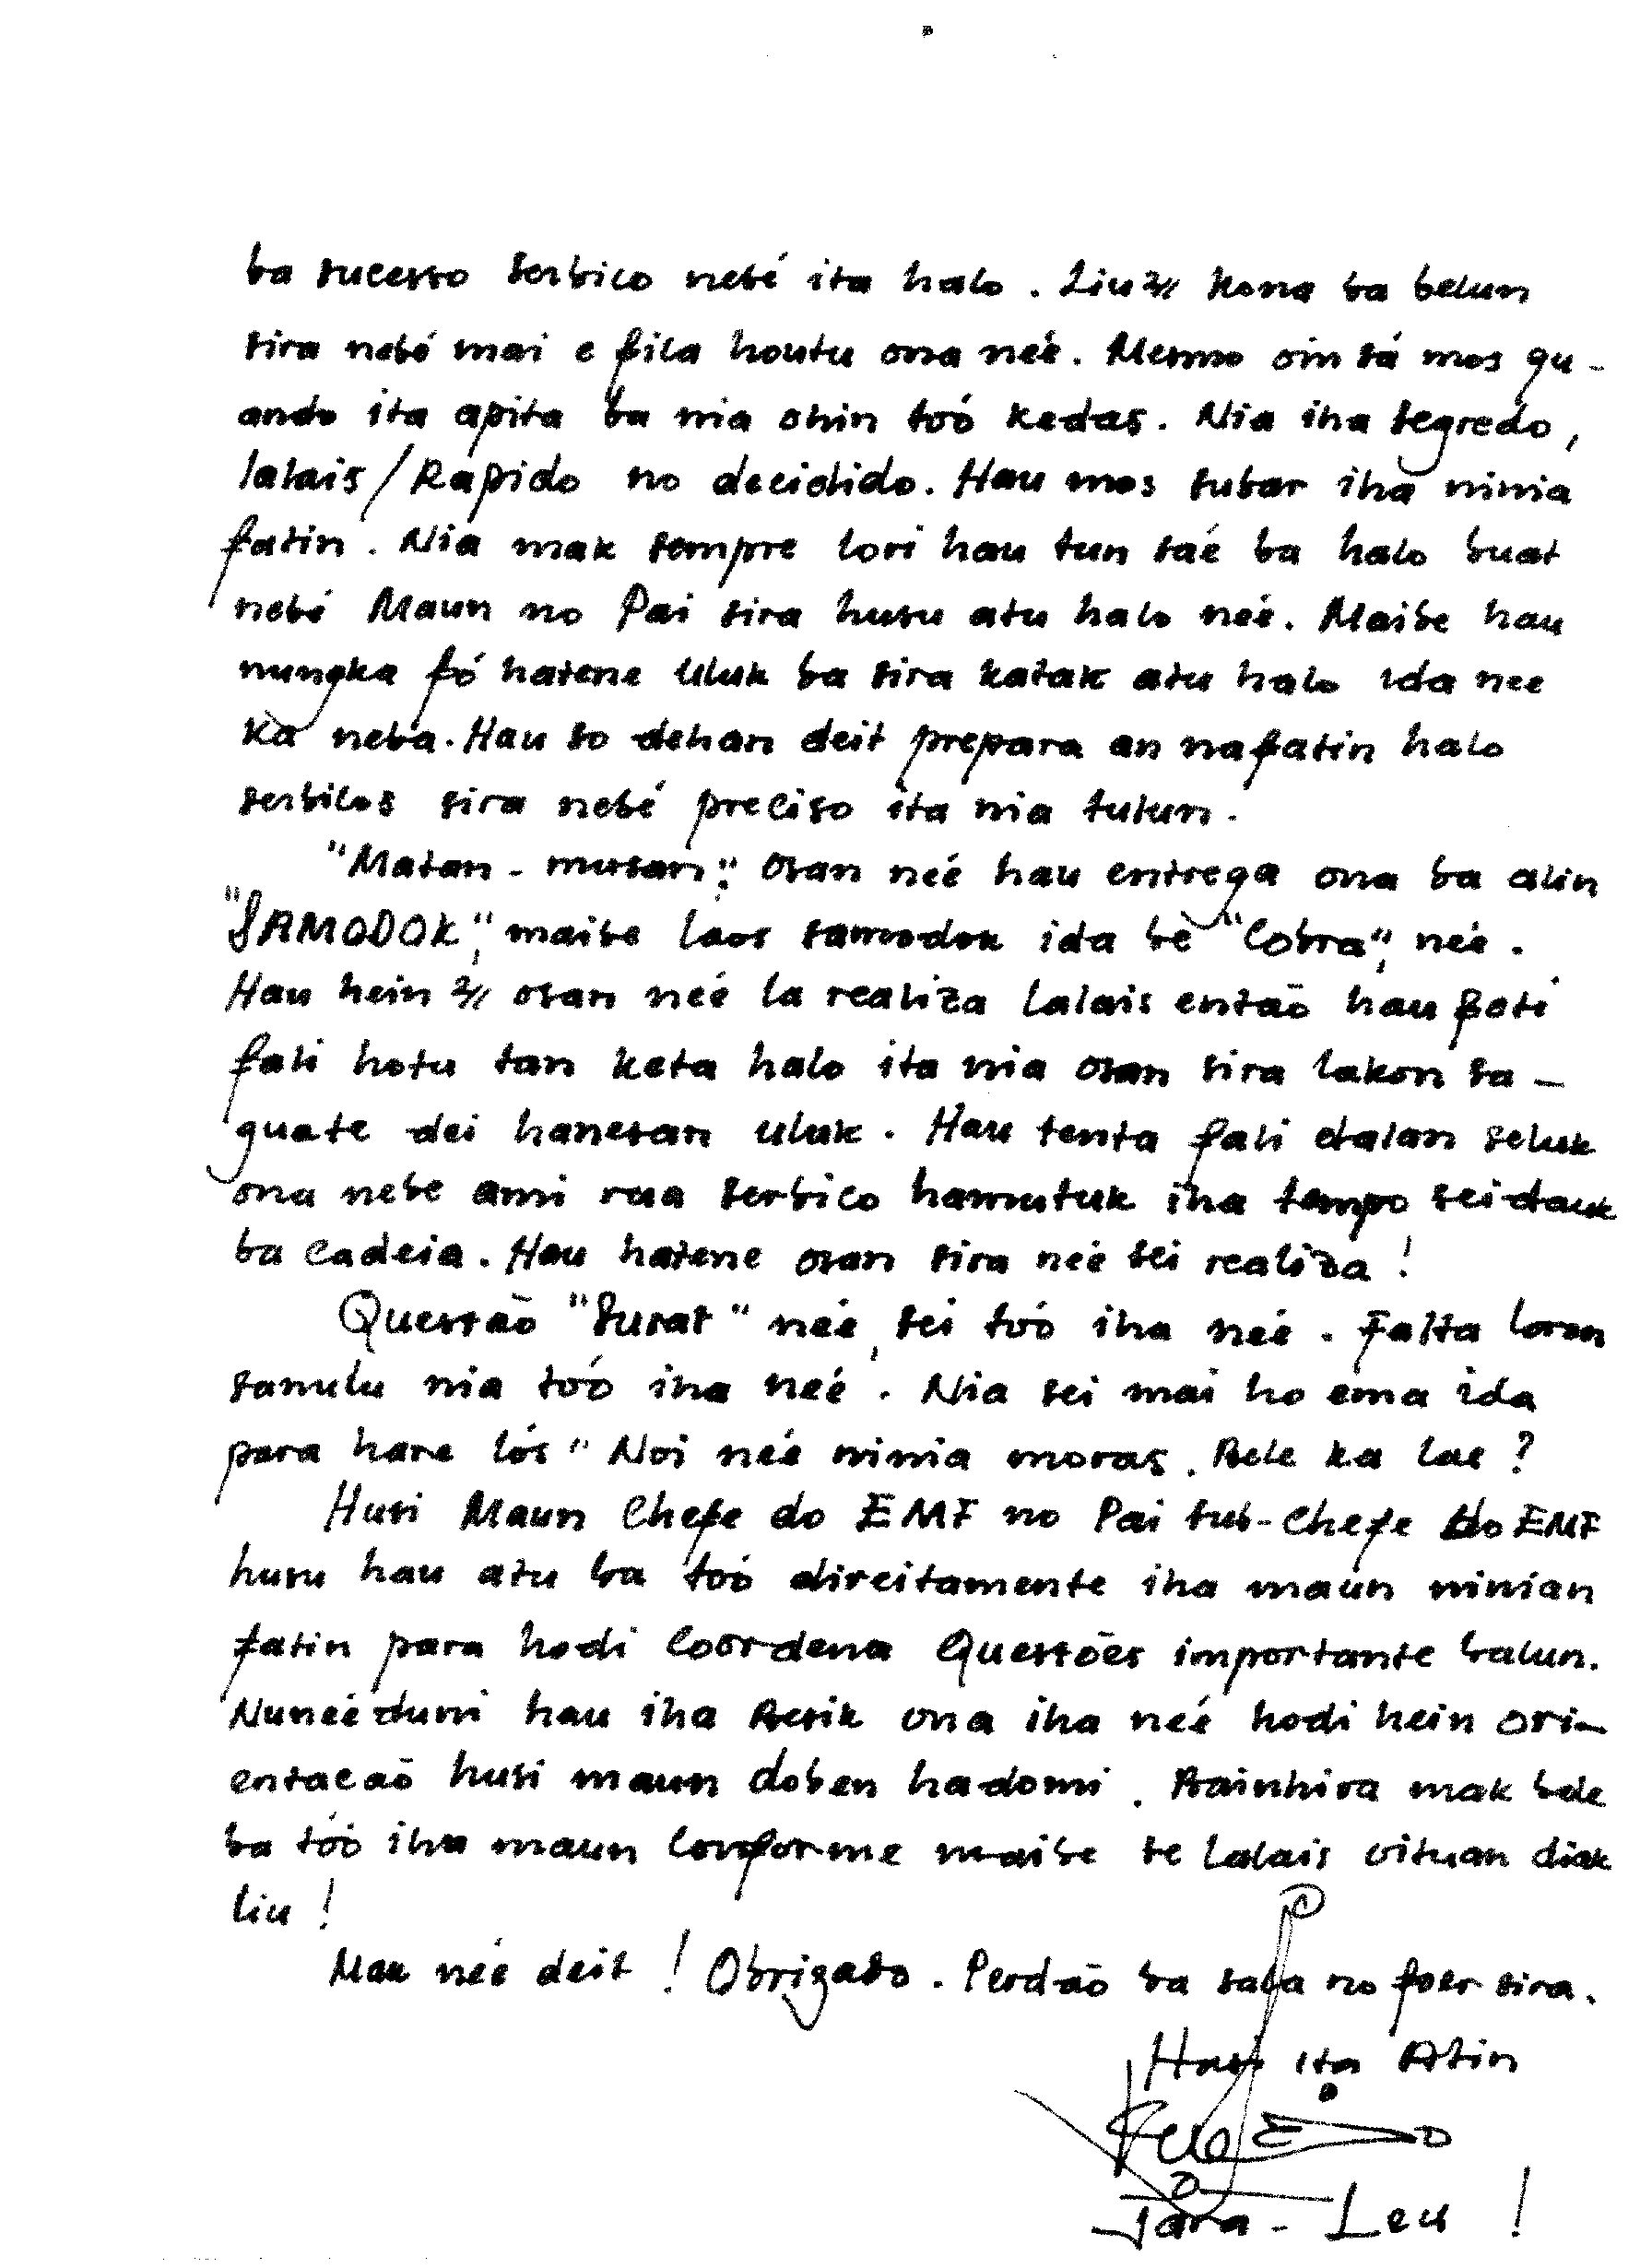 ba sucesso serbico nebé ita halo. Liu 2x kona ba belun
sira nebé mai e fila houtu ona neé. Mesmo oin sá mos qu-
ando ita apita ba nia ohin toó kedas. Nia iha segredo,
lalais/Rapido no decidido. Hau mos subar iha ninia
fatin. Nia mak sempre lori hau tun saé ba halo buat
nebé Maun no Pai sira husu atu halo neé. Maibe hau
nungka fó hatene uluk ba sira katak atu halo ida nee
ka neba. Hau so dehan deit prepara an nafatin halo
serbicos sira nebé preciso ita nia tulun.
"Matan-musan". Osan neé hau entrega ona ba alin
"SAMODOK", maibe laos samodok ida bè "Cobra", neé.
Hau hein 2x osan neé la realiza lalais entaõ hau foti
fali hotu tan keta halo ita nia osan sira lakon sa-
guate dei hanesan uluk. Hau tenta fali dalan seluk
ona nebe ami rua serbico hamutuk iha tempo seidauk
ba cadeia. Hau hatene osan sira neé sei realiza!
Questaõ "Surat" neé, sei toó iha neé. Falta loron
sanulu nia toó iha neé. Nia sei mai ho ema ida
para hare lós" Noi neé ninia moras. Bele ka lae?
Husi Maun Chefe do EMF no Pai sub-Chefe do EMF
husu hau atu ba toó direitamente iha maun ninian
fatin para hodi coordena Questões importante balun.
Nuneé duni hau iha Besik ona iha neé hodi hein ori-
entacaõ husi maun doben hadomi. Bainhira mak bele
ba toó iha maun conforme maibe se lalais oituan diak
liu!
Mak neé deit! Obrigado. Perdaõ ba sala no foer sira.
Husi ita Alin
Tara-Leu!